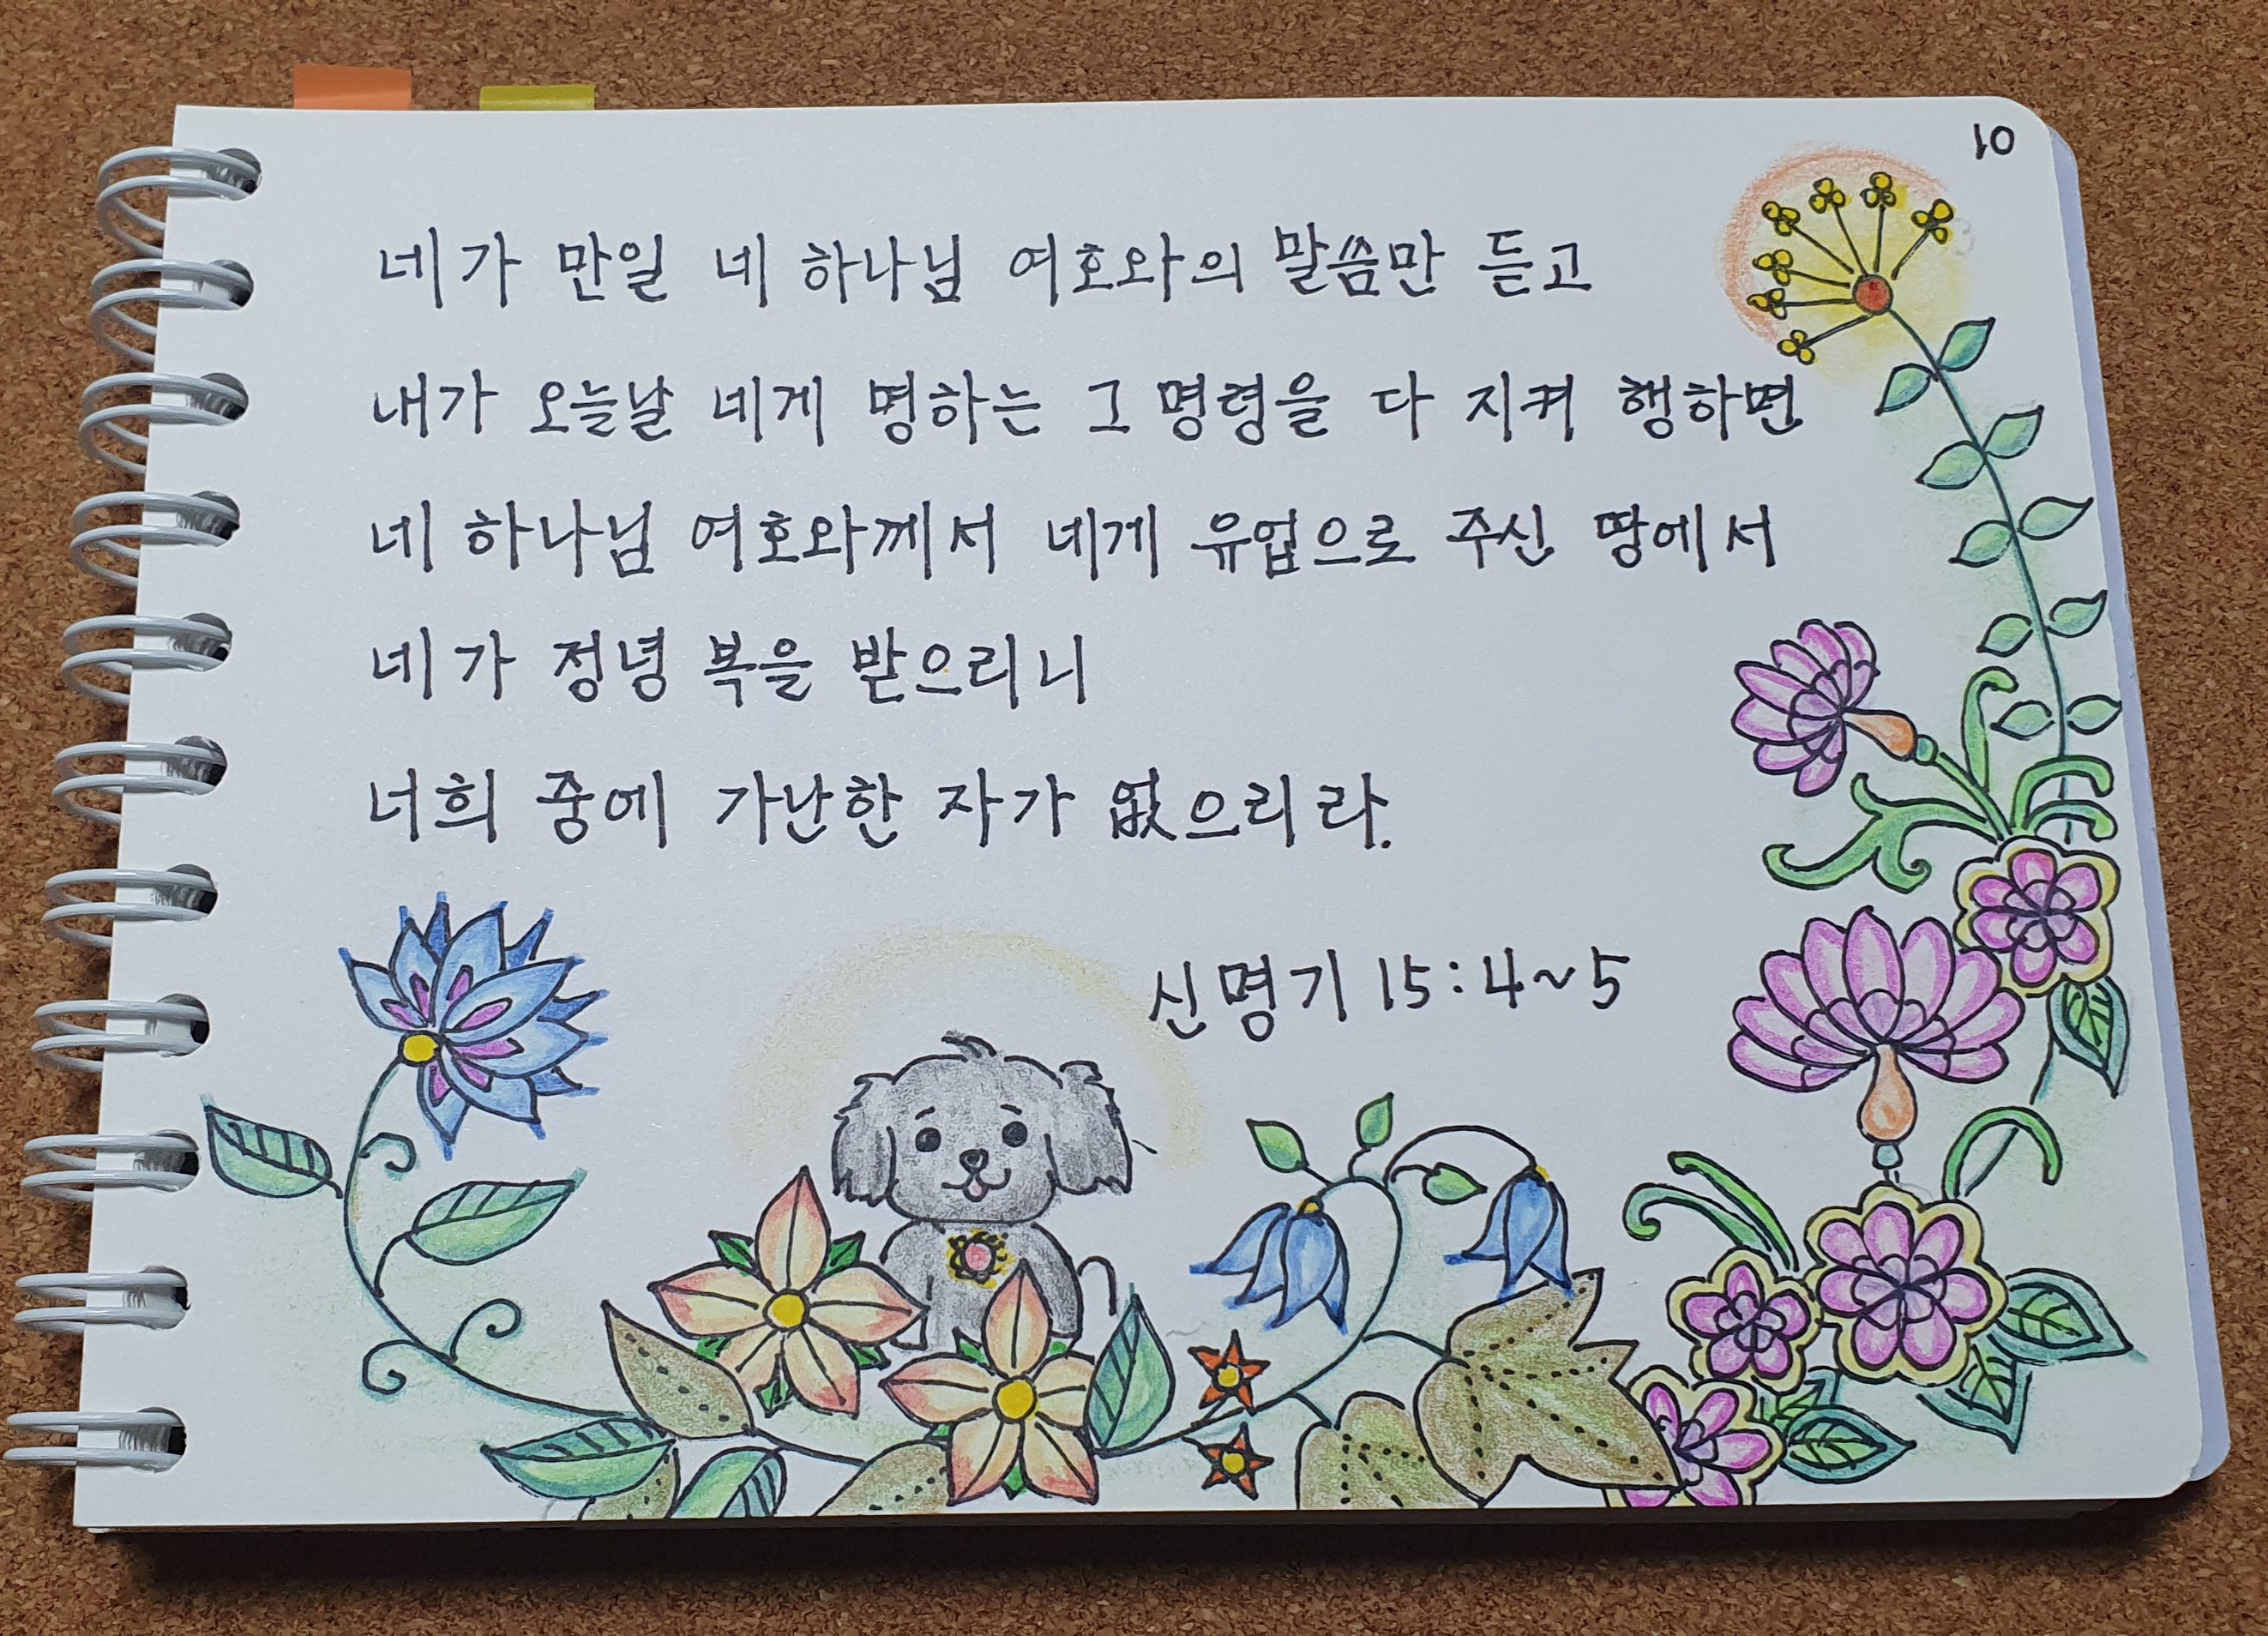 10
네가 만일 네 하나님 여호와의 말씀만 듣고
내가 오늘날 네게 명하는 그 명령을 다 지켜 행하면
네 하나님 여호와께서 네게 유업으로 주신 땅에서
네가 정녕 복을 받으리니
너희 중에 가난한 자가 없으리라.
신명기 15:4~5